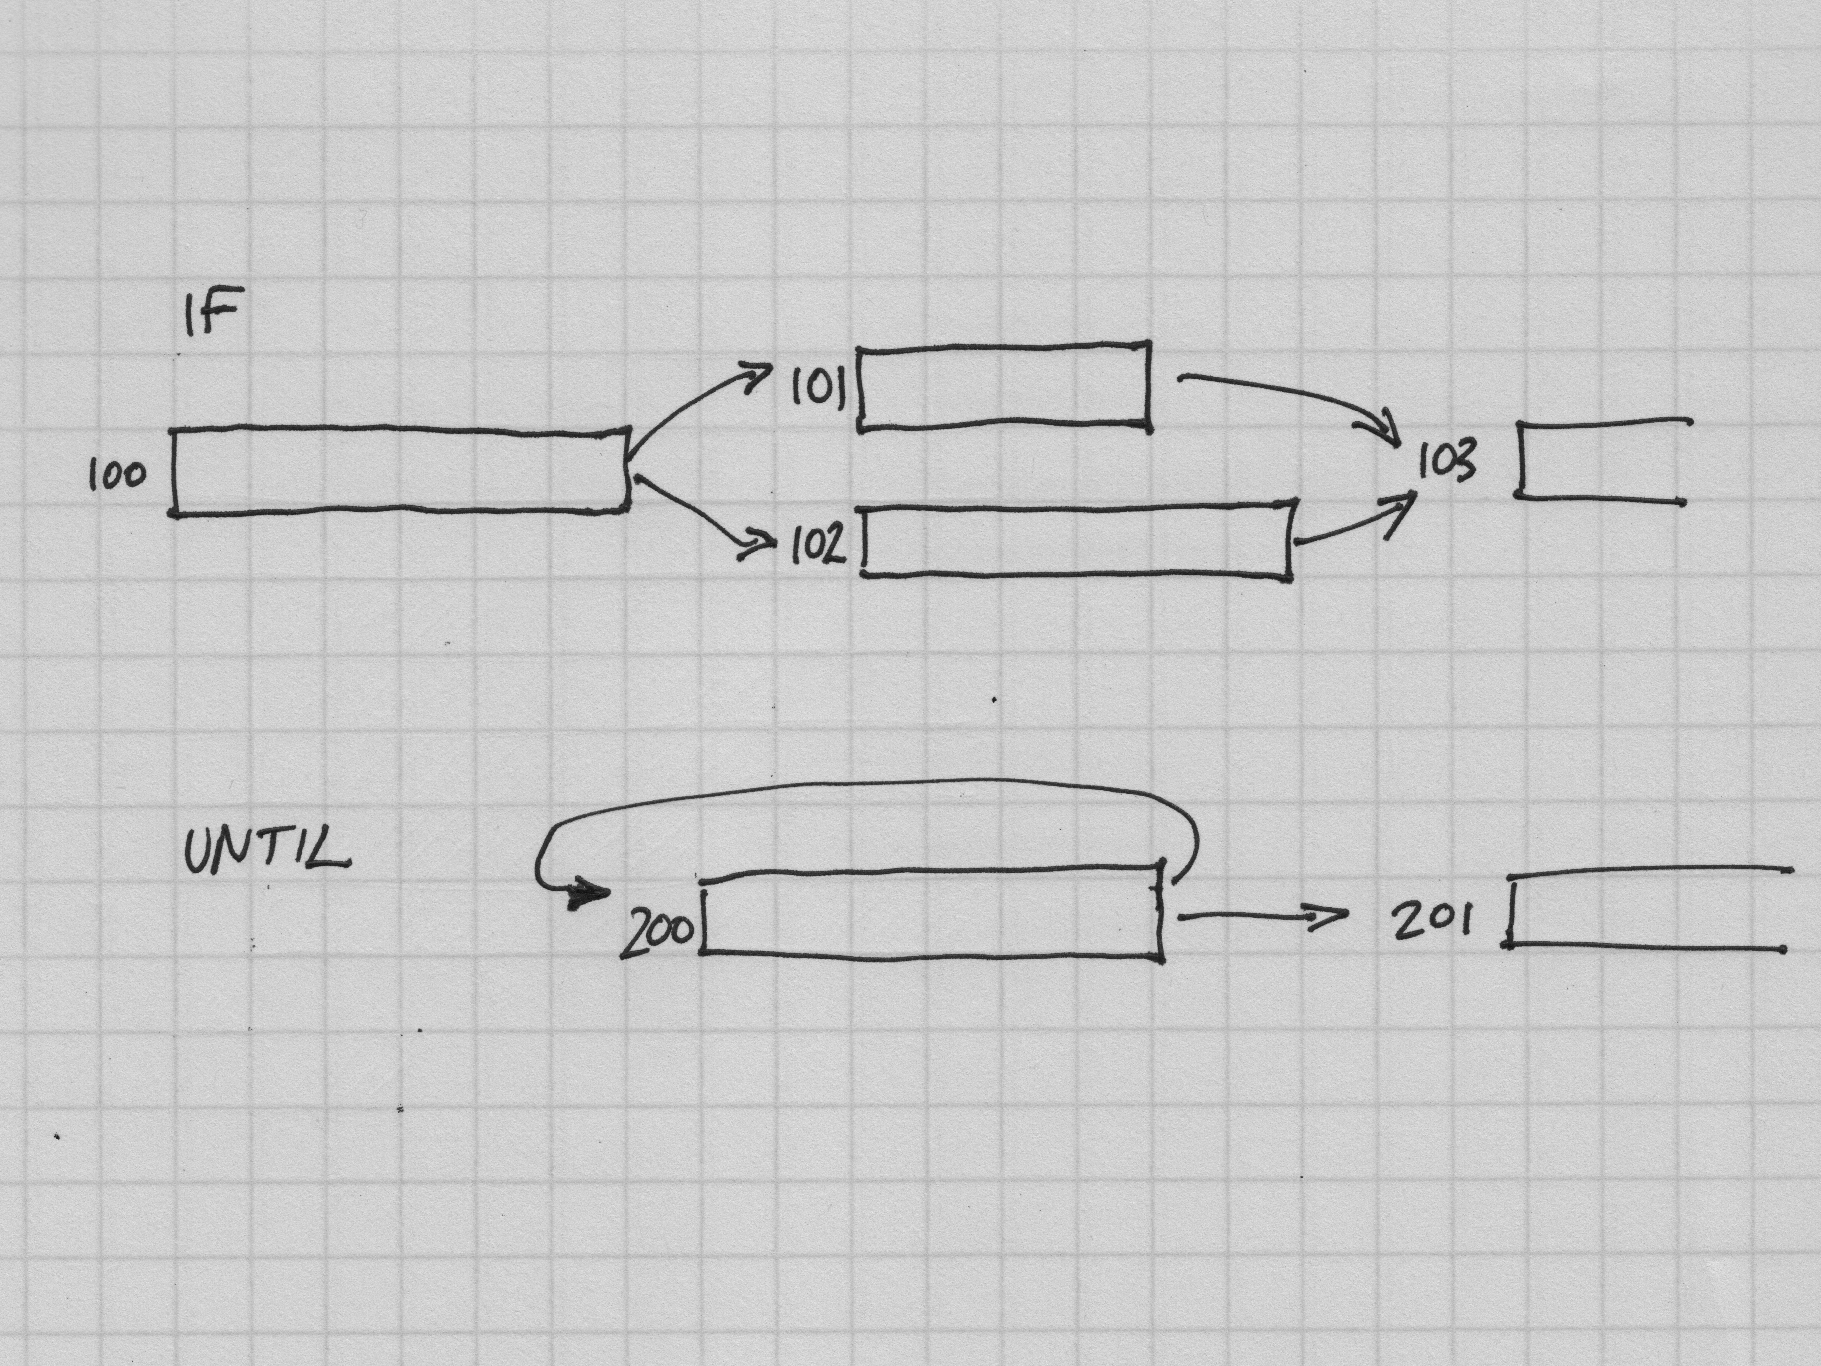 IF
101
100
103
102
UNTIL
200
201